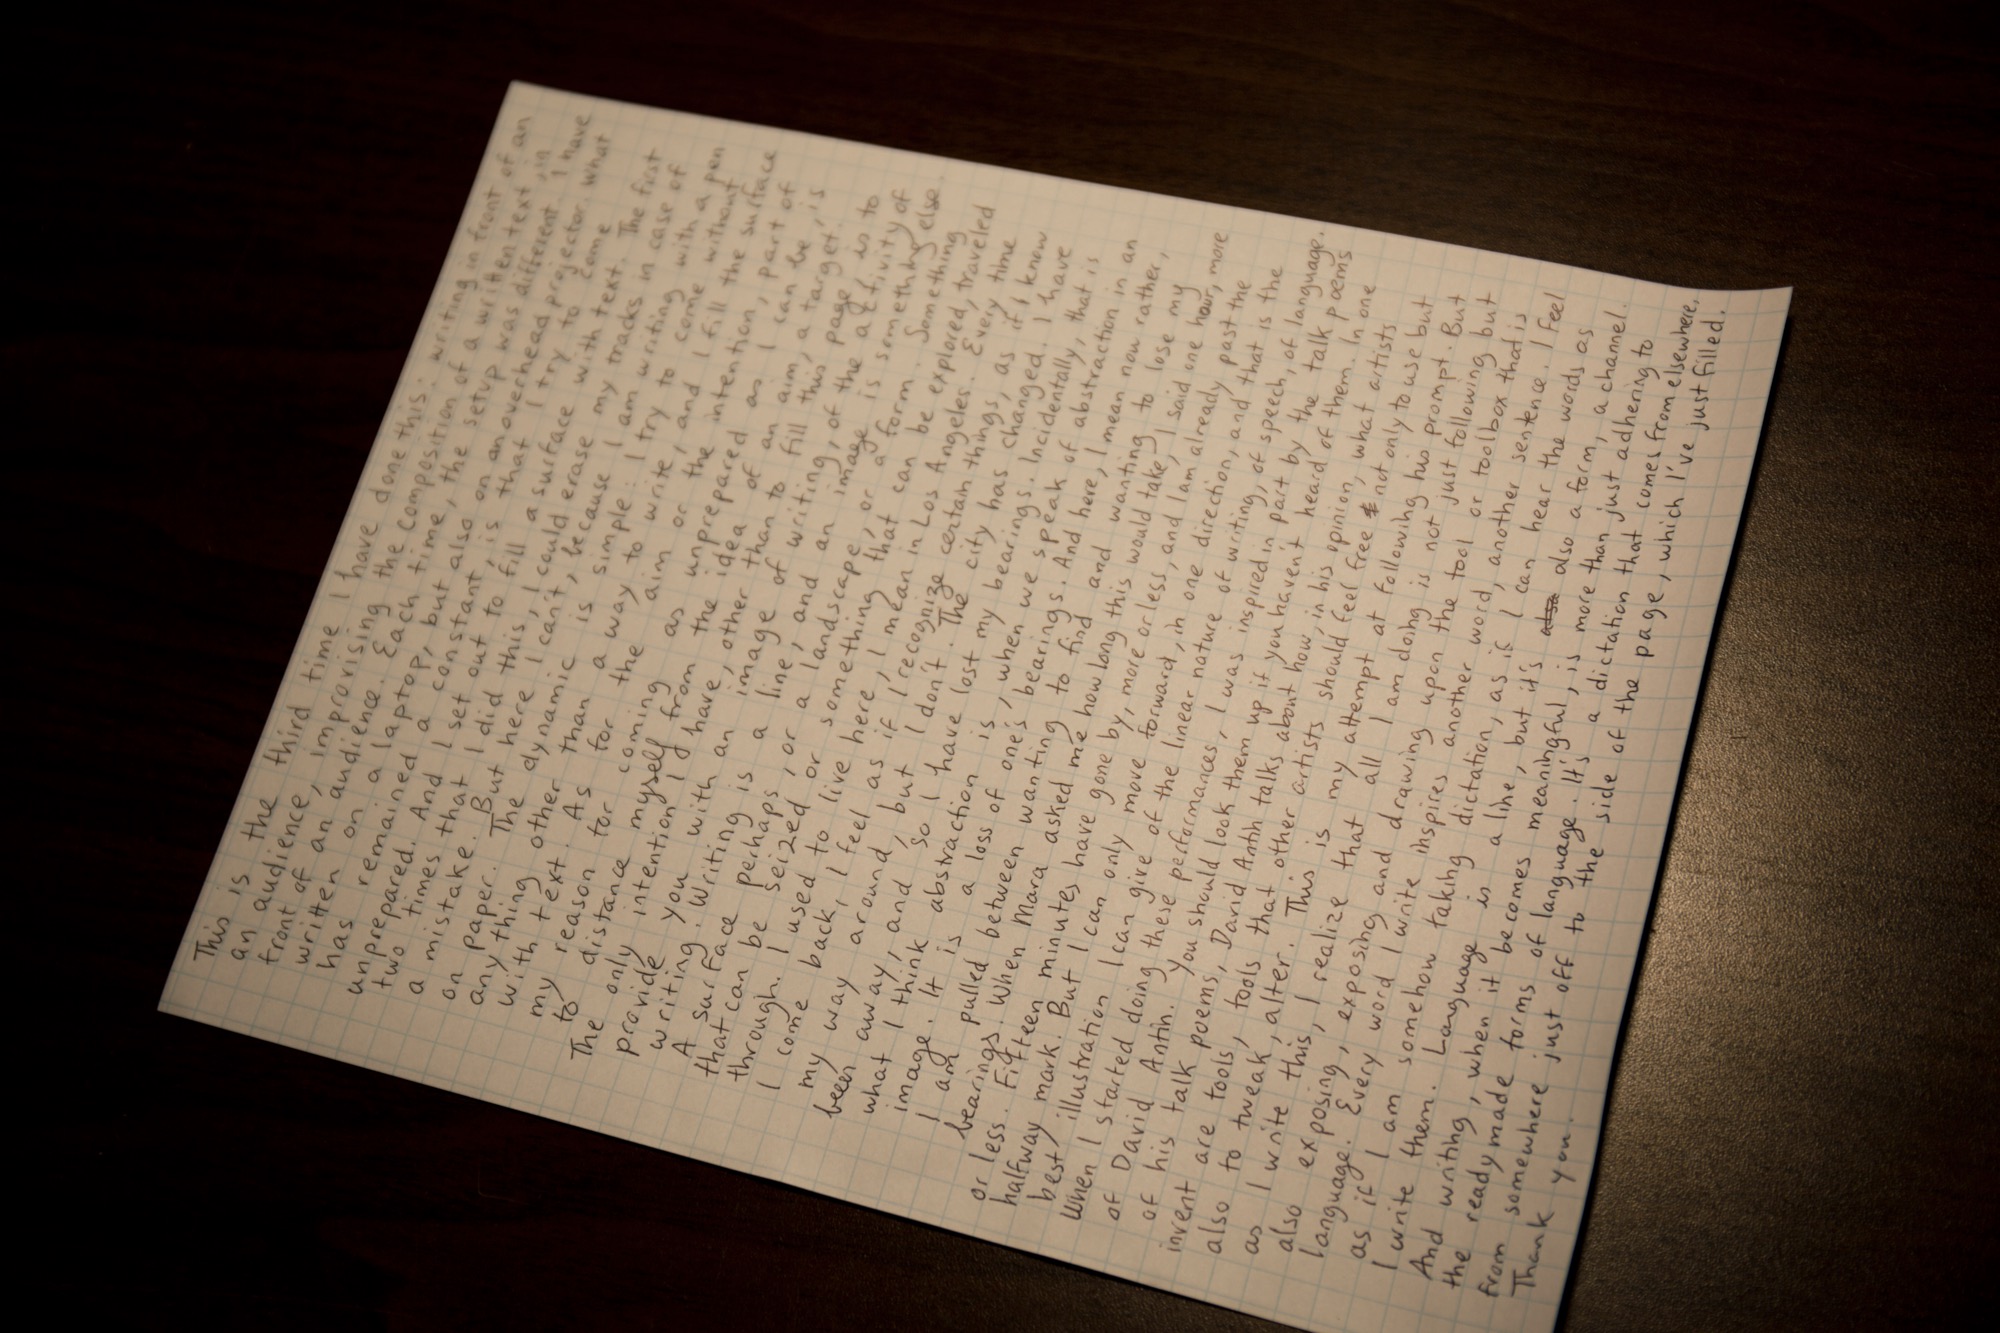 This is the third time I have done this: writing in front of an
an audience, improvising the composition of a written text in
front of an audience. Each time, the setup was different. I have
written on a laptop, but also on an overhead projector. What
has remained a constant, is that I try to come
unprepared. And I set out to fill a surface with text. The first
two times that I did this, I could erase my tracks in case of
a mistake. But here I can't, because I am writing with a pen
on paper. The dynamic is simple: I try to come without
any thing other than a way to write, and I fill the surface
with text. As for the aim or the intention, part of
my reason for coming as unprepared as I can be, is
to distance myself from the idea of an aim, a target.
The only intention I have, other than to fill this page, is to
provide you with an image of writing, of the activity of
writing. Writing is a line, and an image is something else.
A surface perhaps, or a landscape, or a form. Something
that can be seized or something that can be explored, traveled
through. I used to live here, I mean in Los Angeles. Every time
I come back, I feel as if I recognize certain things, as if I know
my way around, but I don't. The city has changed. I have
been away, and so I have lost my bearings. Incidentally, that is
what I think abstraction is, when we speak of abstraction in an
image. It is a loss of one's bearings. And here, I mean now rather,
I am pulled between wanting to find and wanting to lose my
bearings. When Mara asked me how long this would take, I said one hour, more
or less. Fifteen minutes have gone by, more or less, and I am already past the
halfway mark. But I can only move forward, in one direction, and that is the
best illustration I can give of the linear nature of writing, of speech, of language.
When I started doing these performances, I was inspired in part by the talk poems
of David Antin. You should look them up if you haven't heard of them. In one
of his talk poems, David Antin talks about how, in his opinion, what artists
invent are tools, tools that other artists should feel free not only to use but
also to tweak, alter. This is my attempt at following his prompt. But
as I write this, I realize that all I am doing is not just following but
also exposing, exposing and drawing upon the tool or toolbox that is
language. Every word I write inspires another word, another sentence. I feel
as if I am somehow taking dictation, as if I can hear the words as
I write them. Language is a line, but it's also also a form, a channel.
And writing, when it becomes meaningful, is more than just adhering to
the readymade forms of language. It's a dictation that comes from elsewhere,
from somewhere just off to the side of the page, which I've just filled.
Thank you.